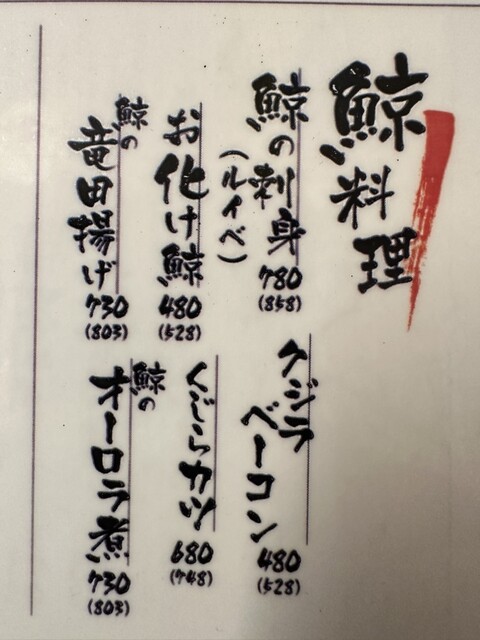 鯨料理
鯨の刺身
(ルイベ)
780
(858)
お化け鯨
480
(528)
鯨の
竜田揚げ
730
(803)
クジラ
ベーコン
480
(528)
くじらカツ
680
(748)
鯨の
オーロラ煮
730
(803)